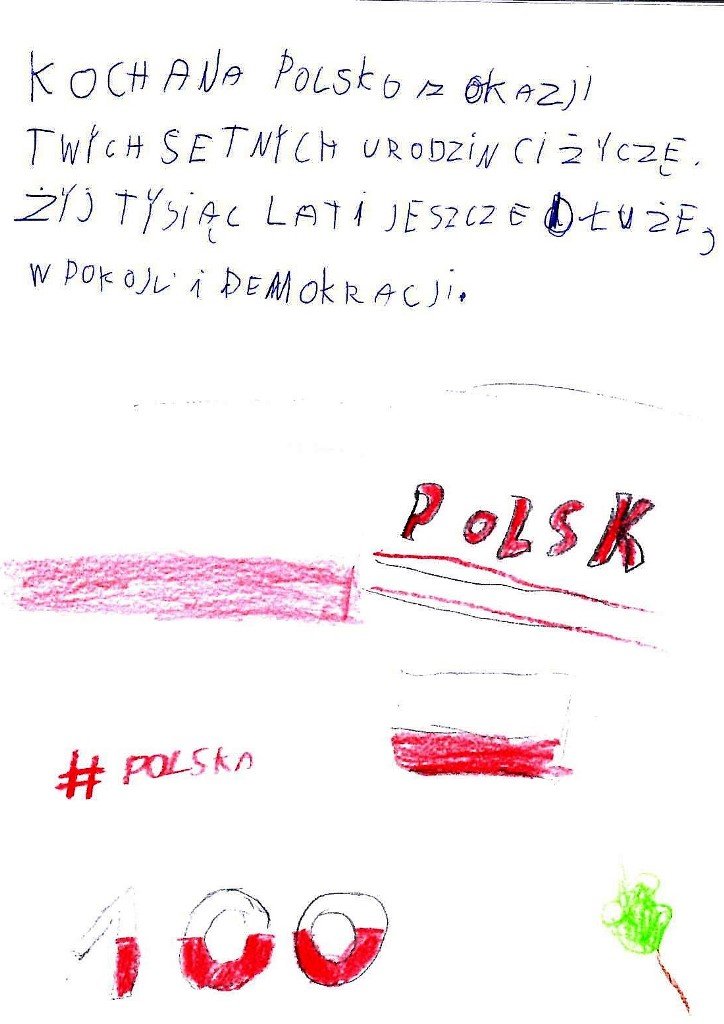 KOCHANA POLSKO Z OKAZJI
TWYCH SETNYCH URODZIN CI ŻYCZĘ.
ŻYJ TYSIĄC LAT I JESZCZE DŁUŻEJ
W POKOJU I DEMOKRACJI.
POLSK
#POLSKA
100